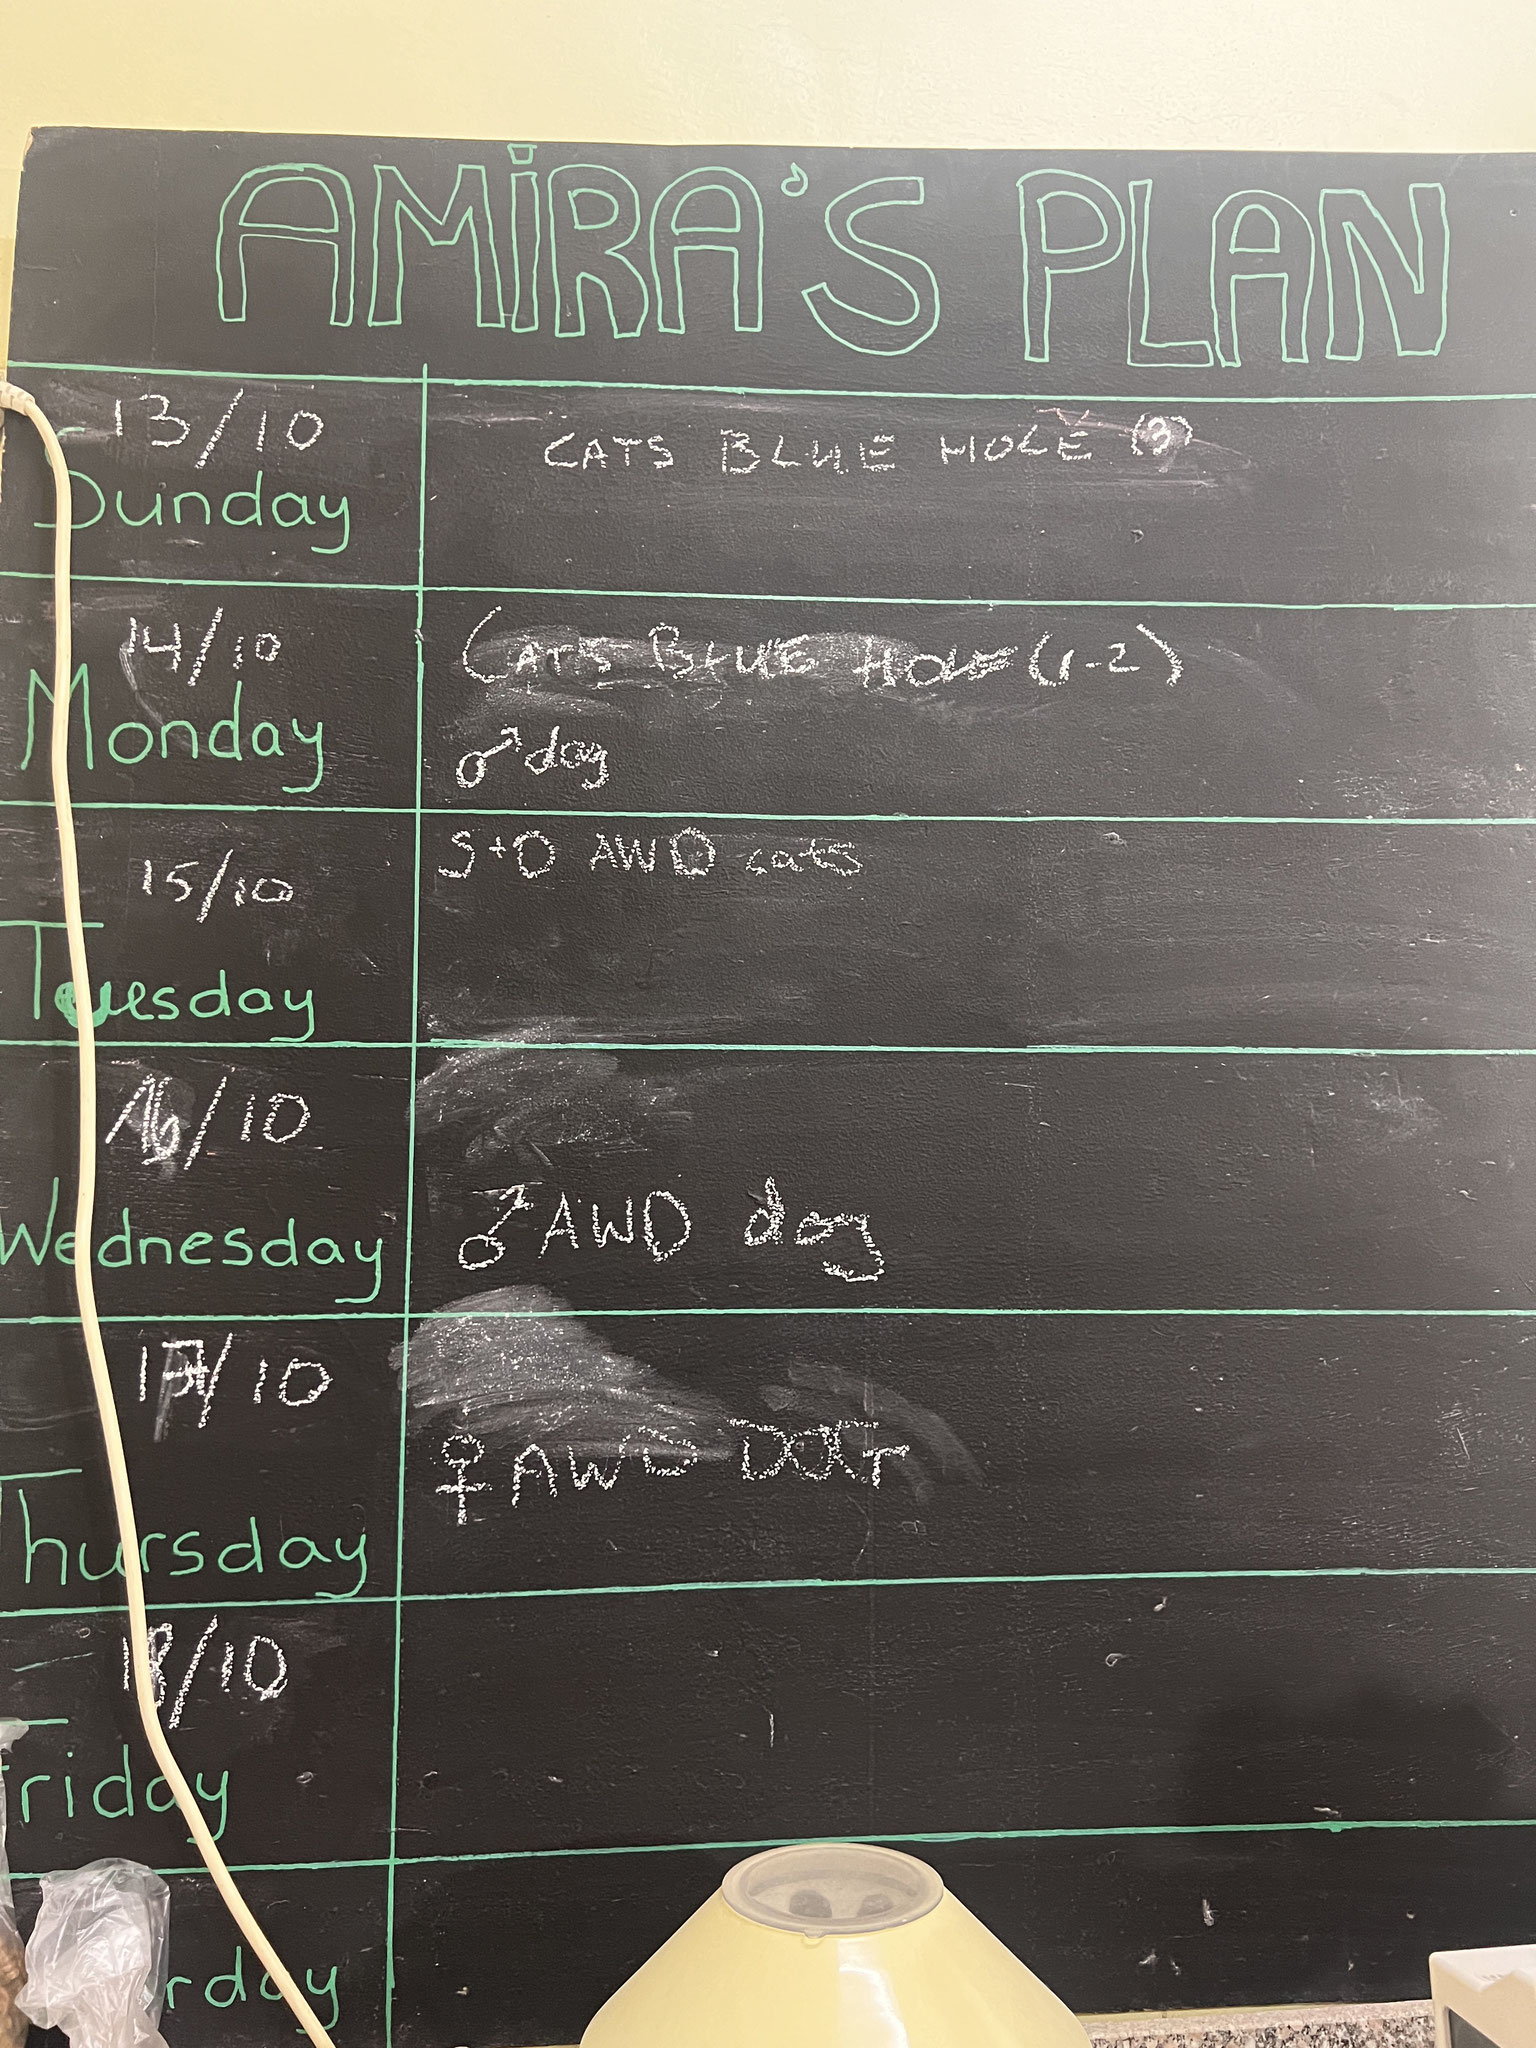 AMiRA'S PLAN
13/10
Sunday
CATS BLUE HOLE (3)
14/10
Monday
CATS BLUE HOLE (1-2)
♂ dog
15/10
Tuesday
S+O AWD cats
16/10
Wednesday
♂ AWD dog
17/10
Thursday
♀ AWD
18/10
Friday
rday